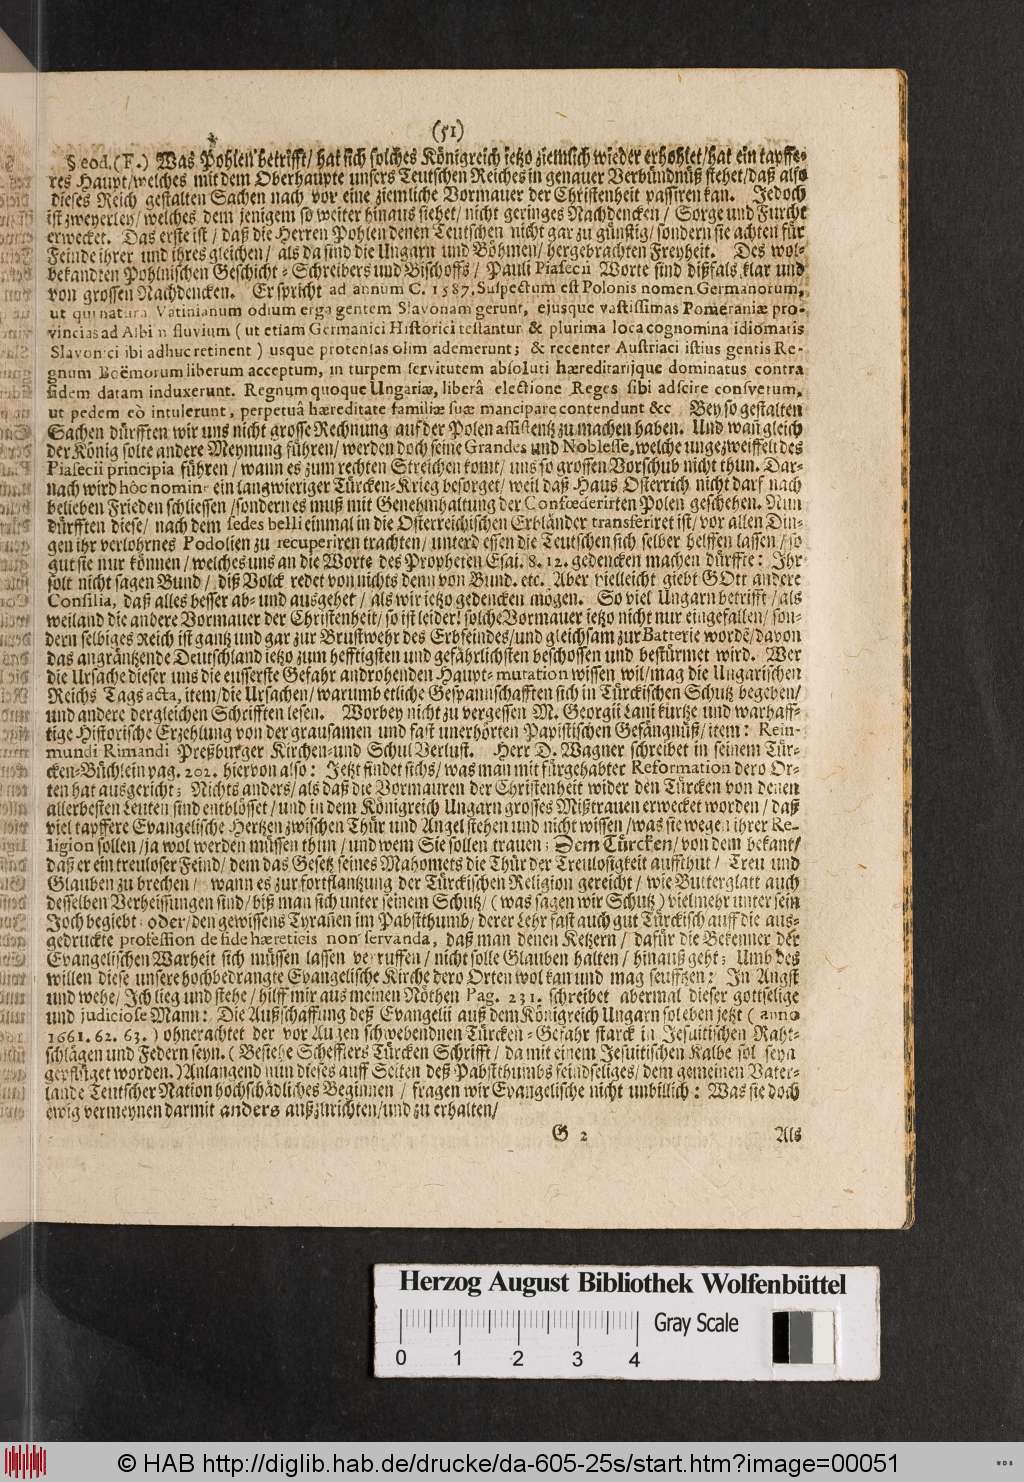 (51)
§ eod. (F.) Was Pohlen betrifft/ hat sich solches Königreich ietzo ziemlich wieder erhohlet/ hat ein tapffe-
res Haupt/ welches mit dem Oberhaupte unsers Teutschen Reiches in genauer Verbündnüß stehet/ daß also
dieses Reich gestalten Sachen nach vor eine ziemliche Vormauer der Christenheit passiren kan. Jedoch
ist zweyerley/ welches dem jenigem so weiter hinaus siehet/ nicht geringes Nachdencken/ Sorge und Furcht
erwecket. Das erste ist/ daß die Herren Pohlen denen Teutschen nicht gar zu günstig/ sondern sie achten für
Feinde ihrer und ihres gleichen/ als da sind die Ungarn und Böhmen/ hergebrachten Freyheit. Des wol-
bekandten Pohlnischen Geschicht-Schreibers und Bischoffs/ Pauli Piasecii Worte sind dißfals klar und
von grossen Nachdencken. Er spricht ad annum C. 1587. Suspectum est Polonis nomen Germanorum,
ut qui natura Vatinianum odium erga gentem Slavonam gerunt, ejusque vastissimas Pomeraniæ pro-
vincias ad Albin fluvium (ut etiam Germanici Historici testantur & plurima loca cognomina idiomatis
Slavonici ibi adhuc retinent) usque protensas olim ademerunt; & recenter Austriaci istius gentis Re-
gnum Boëmorum liberum acceptum, in turpem servitutem absoluti hæreditarijque dominatus contra
fidem datam induxerunt. Regnum quoque Ungariæ, liberâ electione Reges sibi adscire consvetum,
ut pedem eò intulerunt, perpetuâ hæreditate familiæ suæ mancipare contendunt &c Bey so gestalten
Sachen dürfften wir uns nicht grosse Rechnung auf der Polen assistentz zu machen haben. Und wañ gleich
der König solte andere Meynung führen/ werden doch seine Grandes und Noblesse, welche ungezweiffelt des
Piasecii principia führen/ wann es zum rechten Streichen komt/ uns so grossen Vorschub nicht thun. Dar-
nach wird hôc nomine ein langwieriger Türcken-Krieg besorget/ weil daß Haus Osterrich nicht darf nach
belieben Frieden schliessen/ sondern es muß mit Genehmhaltung der Confœderirten Polen geschehen. Nun
dürfften diese/ nach dem sedes belli einmal in die Österreichischen Erbländer transferiret ist/ vor allen Din-
gen ihr verlohrnes Podolien zu recuperiren trachten/ unterdessen die Teutschen sich selber helffen lassen/ so
gut sie nur können/ welches uns an die Worte des Propheten Esai. 8. 12. gedencken machen dürffte: Ihr
solt nicht sagen Bund/ diß Volck redet von nichts denn von Bund. etc. Aber vielleicht giebt GOtt andere
Consilia, daß alles besser ab- und ausgehet/ als wir ietzo gedencken mögen. So viel Ungarn betrifft/ als
weiland die andere Vormauer der Christenheit/ so ist leider! solche Vormauer ietzo nicht nur eingefallen/ son-
dern selbiges Reich ist gantz und gar zur Brustwehr des Erbfeindes/ und gleichsam zur Batterie wordē/ davon
das angräntzende Deutschland ietzo zum hefftigsten und gefährlichsten beschossen und bestürmet wird. Wer
die Ursache dieser uns die eusserste Gefahr androhenden Haupt-mutation wissen wil/ mag die Ungarischen
Reichs Tags acta, item/ die Ursachen/ warumb etliche Gespannschafften sich in Türckischen Schutz begeben/
und andere dergleichen Schrifften lesen. Worbey nicht zu vergessen M. Georgii Lani kurtze und warhaff-
tige Historische Erzehlung von der grausamen und fast unerhörten Papistischen Gefängnüß/ item: Rein-
mundi Rimandi Preßburger Kirchen- und Schul Verlust. Herr D. Wagner schreibet in seinem Tür-
cken-Büchlein pag. 202. hiervon also: Jetzt findet sichs/ was man mit fürgehabter Reformation dero Or-
ten hat ausgericht; Nichts anders/ als daß die Vormauren der Christenheit wider den Türcken von denen
allerbesten Leuten sind entblösset/ und in dem Königreich Ungarn grosses Mißtrauen erwecket worden/ daß
viel tapffere Evangelische Hertzen zwischen Thür und Angel stehen und nicht wissen/ was sie wegen ihrer Re-
ligion sollen/ ja wol werden müssen thun/ und wem Sie sollen trauen; Dem Türcken/ von dem bekant/
daß er ein treuloser Feind/ dem das Gesetz seines Mahomets die Thür der Treulosigkeit auffthut/ Treu und
Glauben zu brechen/ wann es zur fortflantzung der Türckischen Religion gereicht/ wie Butterglatt auch
desselben Verheissungen sind/ biß man sich unter seinem Schutz/ (was sagen wir Schutz) vielmehr unter sein
Joch begiebt: oder/ den gewissens Tyrañen im Pabstthumb/ derer Lehr fast auch gut Türckisch auff die aus-
gedruckte profession de fide hæreticis non servanda, daß man denen Ketzern/ dafür die Bekenner der
Evangelischen Warheit sich müssen lassen verruffen/ nicht solle Glauben halten/ hinauß geht; Umb des
willen diese unsere hochbedrangte Evangelische Kirche dero Orten wol kan und mag seufftzen: In Angst
und wehe/ Ich lieg und stehe/ hilff mir aus meinen Nöthen Pag. 231. schreibet abermal dieser gottselige
und judiciose Mann: Die Außschaffung deß Evangelii auß dem Königreich Ungarn soleben jetzt (anno
1661. 62. 63.) ohnerachtet der vor Augen schwebendnen Türcken-Gefahr starck in Jesuitischen Raht-
schlägen und Federn seyn. (Besiehe Schefflers Türcken Schrifft/ da mit einem Jesuitischen Kalbe sol seyn
gepflüget worden.) Anlangend nun dieses auff Seiten deß Pabstthumbs feindseliges/ dem gemeinen Vater-
lande Teutscher Nation hochschädliches Beginnen/ fragen wir Evangelische nicht unbillich: Was sie doch
ewig vermeynen darmit anders außzurichten/ und zu erhalten/
G 2 Als
Herzog August Bibliothek Wolfenbüttel
Gray Scale
0 1 2 3 4
© HAB http://diglib.hab.de/drucke/da-605-25s/start.htm?image=00051